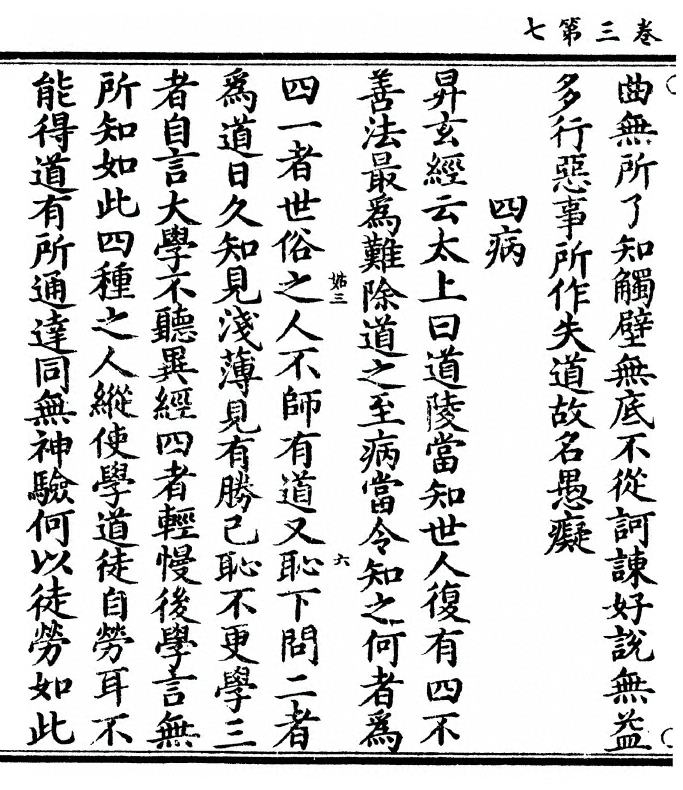 卷三第七
曲無所了知觸壁無底不從訶諫好說無益
多行惡事所作失道故名愚癡
四病
昇玄經云太上曰道陵當知世人復有四不
善法最為難除道之至病當令知之何者為
姤三
六
四一者世俗之人不師有道又恥下問二者
為道日久知見淺薄見有勝己恥不更學三
者自言大學不聽異經四者輕慢後學言無
所知如此四種之人縱使學道徒自勞耳不
能得道有所通達同無神驗何以徒勞如此